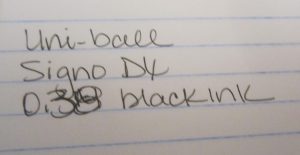 Uni-ball
Signo DX
0.38 black ink